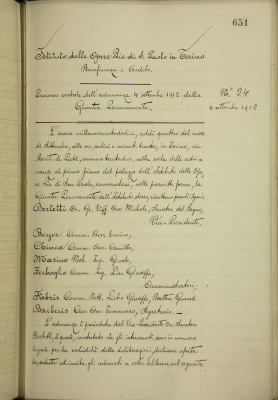 651
Istituto delle Opere Pie di S. Paolo in Torino
Beneficenza e Credito.
Processo verbale dell'adunanza 4 settembre 1912 della
Giunta Permanente.
N.° 24
4 settembre 1912
L'anno millenovecentododici, addì quattro del mese
di Settembre, alle ore sedici e minuti trenta, in Torino, via
Monte di Pietà, numero trentadue, nella sala delle adu-
nanze al primo piano del palazzo dell'Istituto delle Ope-
re Pie di San Paolo, convocata, nelle prescritte forme, la
Giunta Permanente dell'Istituto stesso, sono intervenuti i signori:
Bertetti Gr. Uff. Avv. Michele, Senatore del Regno,
Vice-Presidente,
Boyer Comm. Avv. Enrico,
Chiesa Comm. Avv. Camillo,
Masino Ing. Giusto,
Zerboglio Comm. Ing. Giuseppe,
Amministratori,
Fabris Comm. Dott. Giuseppe, Direttore Generale
Barberis Cav. Avv. Tommaso, Segretario. —
L'adunanza è presieduta dal Vice-Presidente Senatore
Bertetti, il quale, constatato che gli intervenuti sono in numero
legale per la validità delle deliberazioni, dichiara aperta
la seduta ed invita gli adunati a voler deliberare sul seguente